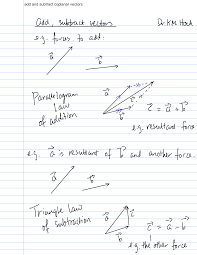 add and subtract coplanar vectors
Add, subtract vectors Dr KM Hock
e.g. forces to add:
a b
Parallelogram
Law
of addition
a b
c = a + b
e.g. resultant force
e.g. a is resultant of b and another force.
a b
Triangle law
of subtraction
a c b
c = a - b
e.g. the other force